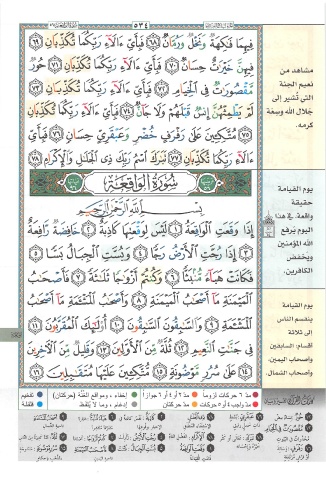 ٥٣٤
فِيهِمَا فَٰكِهَةٌ وَنَخْلٌ وَرُمَّانٌ ٦٨ فَبِأَيِّ ءَالَآءِ رَبِّكُمَا تُكَذِّبَانِ ٦٩
فِيهِنَّ خَيْرَٰتٌ حِسَانٌ ٧٠ فَبِأَيِّ ءَالَآءِ رَبِّكُمَا تُكَذِّبَانِ ٧١ حُورٌ
مَّقْصُورَٰتٌ فِي ٱلْخِيَامِ ٧٢ فَبِأَيِّ ءَالَآءِ رَبِّكُمَا تُكَذِّبَانِ ٧٣
لَمْ يَطْمِثْهُنَّ إِنسٌ قَبْلَهُمْ وَلَا جَآنٌّ ٧٤ فَبِأَيِّ ءَالَآءِ رَبِّكُمَا تُكَذِّبَانِ
٧٥ مُتَّكِـِٔينَ عَلَىٰ رَفْرَفٍ خُضْرٍ وَعَبْقَرِيٍّ حِسَانٍ ٧٦ فَبِأَيِّ
ءَالَآءِ رَبِّكُمَا تُكَذِّبَانِ ٧٧ تَبَٰرَكَ ٱسْمُ رَبِّكَ ذِي ٱلْجَلَٰلِ وَٱلْإِكْرَامِ ٧٨
سُورَةُ الْوَاقِعَةِ
بِسْمِ ٱللَّهِ ٱلرَّحْمَٰنِ ٱلرَّحِيمِ
إِذَا وَقَعَتِ ٱلْوَاقِعَةُ ١ لَيْسَ لِوَقْعَتِهَا كَاذِبَةٌ ٢ خَافِضَةٌ رَّافِعَةٌ
٣ إِذَا رُجَّتِ ٱلْأَرْضُ رَجًّا ٤ وَبُسَّتِ ٱلْجِبَالُ بَسًّا ٥
فَكَانَتْ هَبَآءً مُّنۢبَثًّا ٦ وَكُنتُمْ أَزْوَٰجًا ثَلَٰثَةً ٧ فَأَصْحَٰبُ
ٱلْمَيْمَنَةِ مَآ أَصْحَٰبُ ٱلْمَيْمَنَةِ ٨ وَأَصْحَٰبُ ٱلْمَشْـَٔمَةِ مَآ أَصْحَٰبُ
ٱلْمَشْـَٔمَةِ ٩ وَٱلسَّٰبِقُونَ ٱلسَّٰبِقُونَ ١٠ أُو۟لَٰٓئِكَ ٱلْمُقَرَّبُونَ ١١
فِي جَنَّٰتِ ٱلنَّعِيمِ ١٢ ثُلَّةٌ مِّنَ ٱلْأَوَّلِينَ ١٣ وَقَلِيلٌ مِّنَ ٱلْـَٔاخِرِينَ
١٤ عَلَىٰ سُرُرٍ مَّوْضُونَةٍ ١٥ مُّتَّكِـِٔينَ عَلَيْهَا مُتَقَٰبِلِينَ ١٦
مشاهد من
نعيم الجنة
التي تُشير إلى
جَلال الله وسِعة
كرمه.
يوم القيامة
حقيقة
واقعة. في هذا
اليوم يرفع
الله المؤمنين
ويخفض
الكافرين.
يوم القيامة
ينقسم الناس
إلى ثلاثة
أقسام: السابقين
وأصحاب اليمين،
وأصحاب الشمال.
مد ٦ حركات لزوماً
مد ٢ أو ٤ أو ٦ جوازاً
إخفاء، ومواقع الغُنَّة (حركتان)
تفخيم
مد واجب ٤ أو ٥ حركات
مد حركتان
إدغام، وما لا يُلفَظ
قلقلة